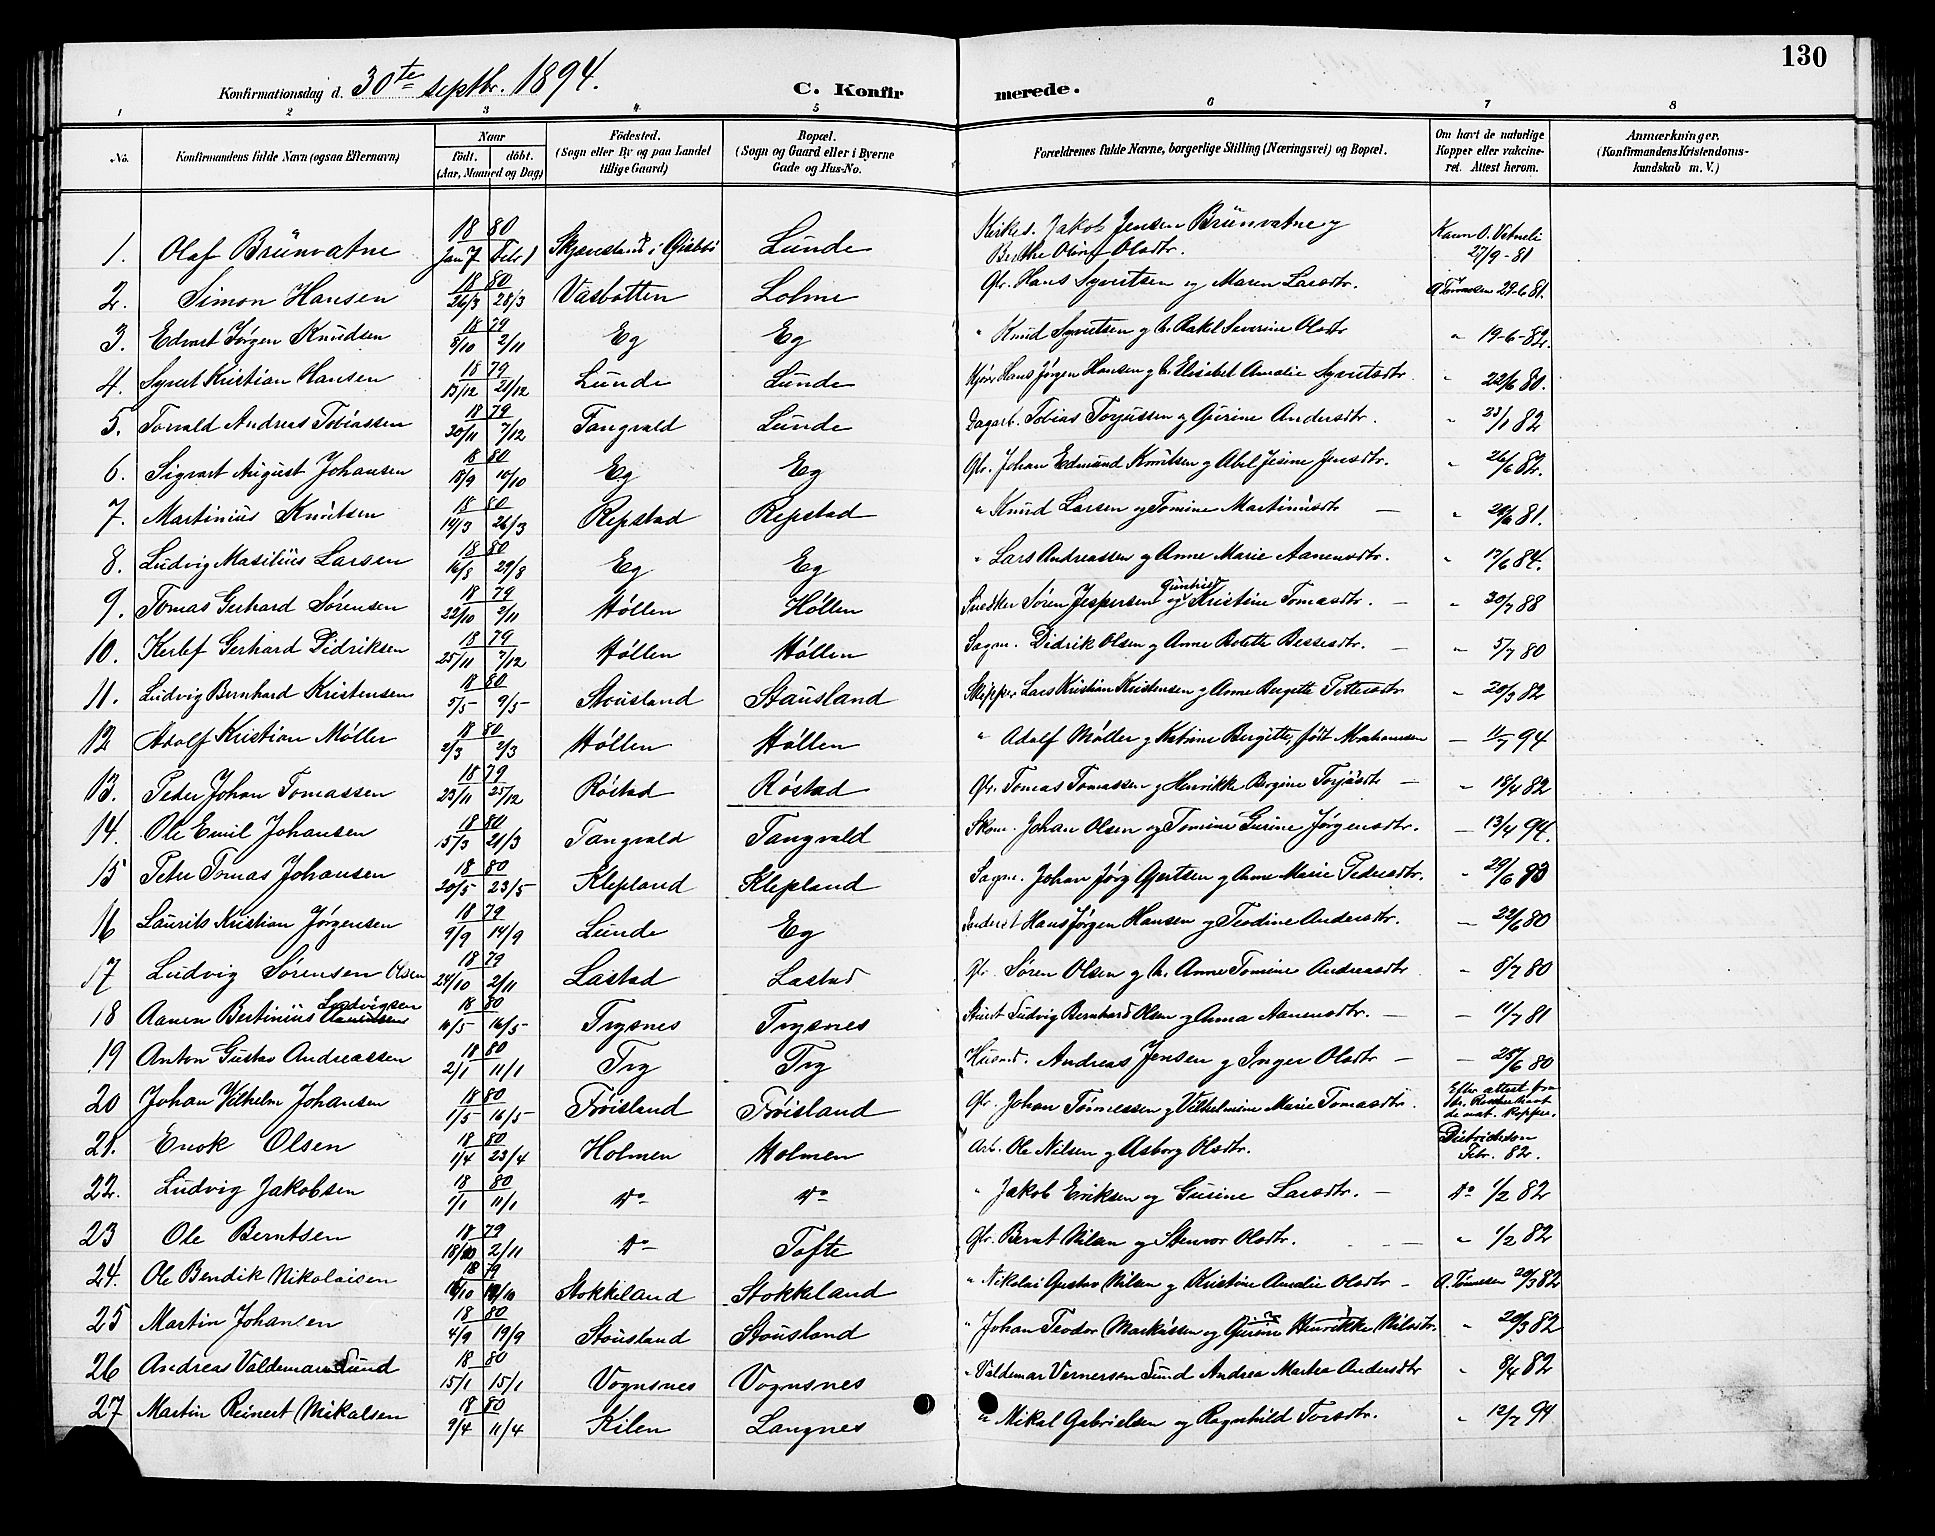 130
Konfirmationsdag d. 30te septbr. 1894. C. Konfirmerede.
1 2 3 4 5 6 7 8
No. Konfirmandens fulde Navn (ogsaa Efternavn) Naar födt. döbt. (Aar, Maaned og Dag) Födested. (Sogn eller By og paa Landet tillige Gaard) Bopæl. (Sogn og Gaard eller i Byerne Gade og Hus-No. Forældrenes fulde Navne, borgerlige Stilling (Næringsvei) og Bopæl. Om havt de naturlige Kopper eller vakcineret. Attest herom. Anmærkninger. (Konfirmandens Kristendomskundskab m. V.)
1. Olaf Brünvatne 1880 Jan 7 Febr 1 Lunde Kirkes. Jakob Jensen Brünvatne g Olsdtr. 27/9-81
2. Simon Hansen 1880 26/3 28/3 Vasbotten Lohne Gbr. Hans Syvertsen og Maren Larsdtr. 29-6 81.
3. Edvart Jørgen Knudsen 1879 8/10 2/11 Eg Eg " Knud Syvertsen g h. Rakel Severine Olsdtr " 19-6-82.
4. Syvert Kristian Hansen 1879 13/12 21/12 Lunde Lunde Hans Jørgen Hansen g h. Elisabet Amalie Syvertsdtr " 22/6 80.
5. Torvald Andreas Tobiassen 1879 30/11 7/12 Tangvald Lunde Dagarb. Tobias Torjussen g Gurine Andersdtr. " 23/1 82
6. Sigvart August Johansen 1880 18/9 10/10 Eg Eg Gbr. Johan Edmund Knutsen g Abel Jesine Jensdtr. " 26/6 82.
7. Martinius Knutsen 1880 14/3 26/3 Repstad Repstad " Knud Larsen og Tomine Martinusdtr — " 29/6 81.
8. Ludvig Masilius Larsen 1880 16/8 29/8 Eg Eg " Lars Andreassen g Anne Marie Aanensdtr. " 17/6 84.
9. Tomas Gerhard Sørensen 1879 22/10 2/11 Höllen Höllen Snedker Søren Jespersen og Gunhild Kristine Tomasdtr. — " 30/7 88
10. Kerlef Gerhard Didriksen 1879 25/11 7/12 Höllen Höllen Sagm. Didrik Olsen g Anne Bolette Bessesdtr. — " 5/7 80
11. Ludvig Bernhard Kristensen 1880 5/5 9/5 Stousland Stausland Skipper Lars Kristian Kristensen g Anne Bergitte Pettersdtr " 20/3 82
12 Adolf Kristian Møller 1880 2/3 2/3 Höllen Höllen " Adolf Møller g Katrine Bergitte, født Abrahamsen — 11/7 94
13. Peder Johan Tomassen 1879 23/11 25/12 Röstad Röstad Gbr. Tomas Tomassen g Henrikke Bergine Torjusdtr — " 18/4 82
14. Ole Emil Johansen 1880 15/3 21/3 Tangvald Tangvald Skom. Johan Olsen og Tomine Gurine Jørgensdtr. — 13/4 94.
15 Peder Tomas Johansen 1880 20/5 23/5 Klepland Klepland Sagm. Johan Jørg Gjertsen g Anne Marie Pedersdtr. " 29/6 83
16 Laurits Kristian Jörgensen 1879 9/9 14/9 Lunde Eg Hans Jørgen Hansen og Teodine Andersdtr. — 22/6 80
17 Ludvig Sørensen Olsen 1879 24/10 2/11 Lastad Lastad Gbr. Søren Olsen g h. Anne Tomine Andreasdtr " 8/7 80
18 Aanen Bertinius Ludvigsen 1880 10/5 16/5 Trysnes Trysnes Ludvig Bernhard Olsen og Anna Aanensdtr. — — 11/7 81
19 Anton Gustav Andreassen 1880 2/1 11/1 Try Try Husmd. Andreas Jensen g Inger Olsdtr — — 25/6 80
20 Johan Vilhelm Johansen 1880 1/5 16/5 Fröisland Fröisland Gbr. Johan Tönnessen g Vilhelmine Marie Tomasdtr. Efter attest fra havt de nat. Kopper.
21. Enok Olsen 1880 1/4 23/4 Holmen Holmen Arb. Ole Nilsen g Asborg Olsdtr. Dietrichson Febr. 82.
22. Ludvig Jakobsen 1880 1/1 11/1 do do " Jakob Eriksen og Gurine Larsdtr. — do 1/2 82
23 Ole Berntsen 1879 18/10 2/11 do Tofte Gbr. Bernt Nilsen og Stenvor Olsdtr. — " 1/2 82
24. Ole Bendik Nikolaisen 1879 Stokkeland Stokkeland " Nikolai Gustav Nilsen g Kristine Amalie Olsdtr — A. Tönnesen 20/3 82
25 Martin Johansen 1880 4/9 19/9 Stousland Stousland " Johan Teodor Markussen og Gurine Henrikke Nilsdtr. " 20/3 82
26 Andreas Valdemar Lund 1880 15/1 15/1 Vognsnes Vognsnes " Valdemar Vernersen Lund Andrea Marthea Andersdtr " 8/4 82
27 Martin Reinert Mikalsen 1880 9/4 11/4 Kilen Langnes " Mikal Gabrielsen og Ragnhild Torsdtr. " 12/7 94